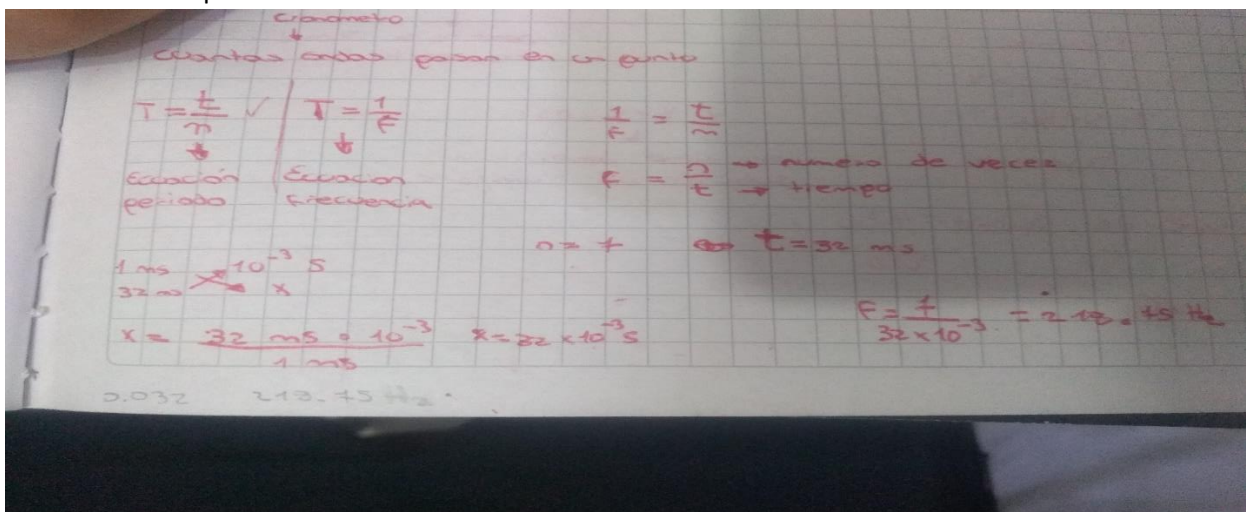 cronometro
cuantas ondas pasan en un punto
T = t/n ✓ | T = 1/F
1/F = t/n
Ecuación periodo
Ecuacion Frecuencia
F = n/t → numero de veces → tiempo
n = 7 t = 32 ms
1 ms 10⁻³ s
32 ms x
x = 32 ms · 10⁻³ / 1 ms x = 32 × 10⁻³ s
F = 7 / 32 × 10⁻³ = 218.75 Hz
0.032 218.75 Hz